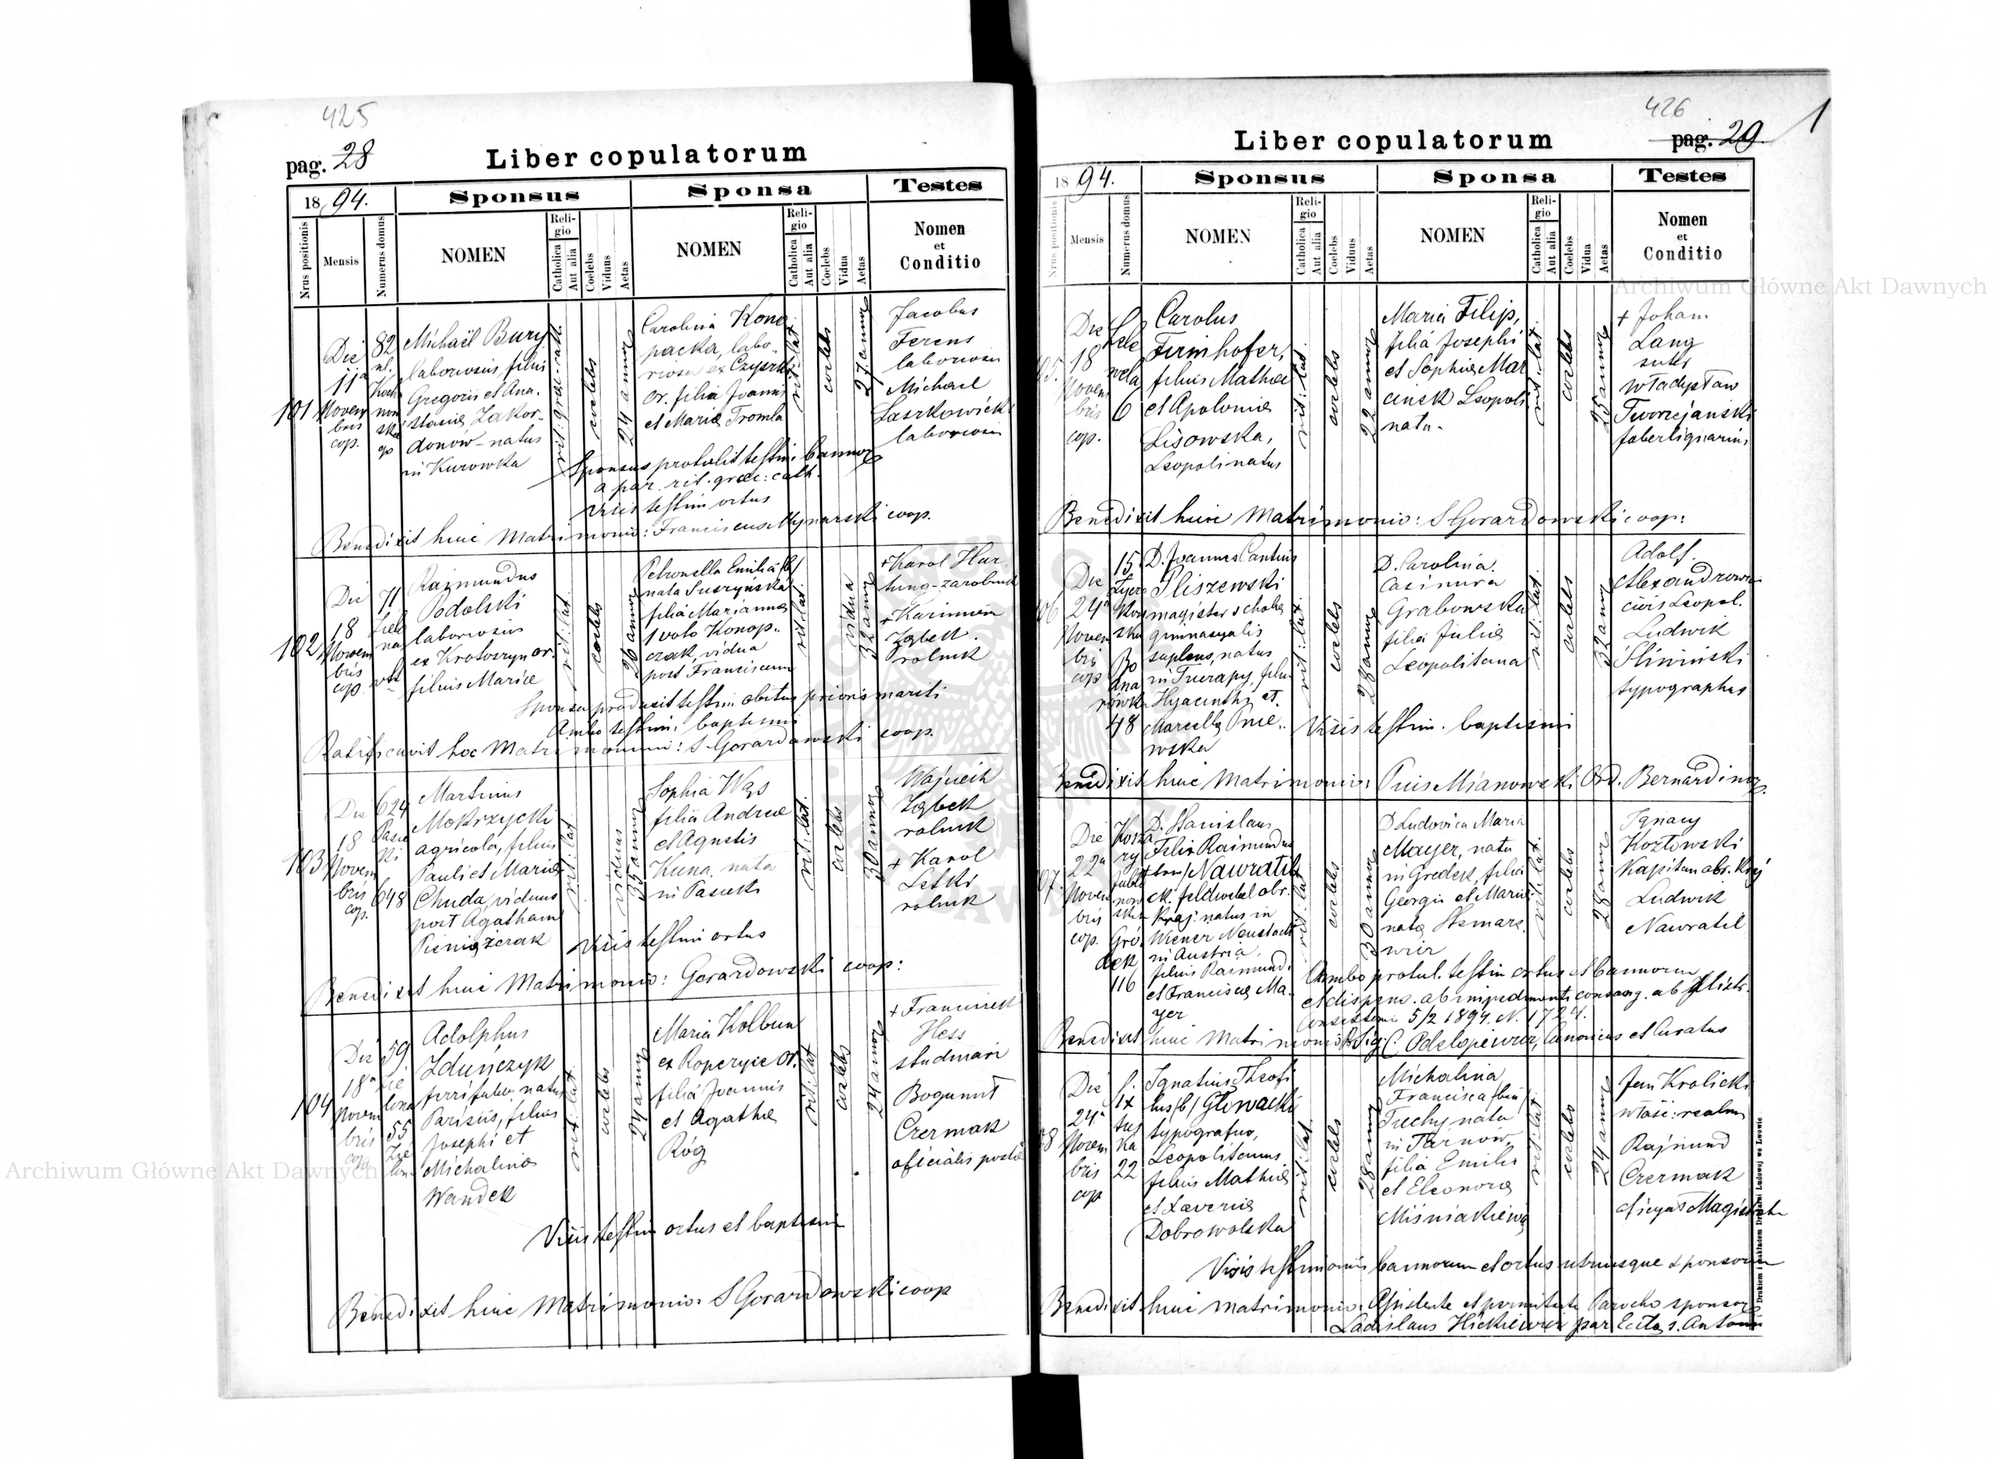 425
pag. 28
Liber copulatorum
18 94.
Sponsus
Sponsa
Testes
Nrus positionis
Mensis
Numerus domus
NOMEN
Religio
Catholica
Aut alia
Coelebs
Viduus
Aetas
NOMEN
Religio
Catholica
Aut alia
Coelebs
Vidua
Aetas
Nomen
et
Conditio
101
Die
11a
Novem
bris
cop.
82
Michaël Bury
laboriosus filius
Gregorii et Ana-
stasiae Zakor-
donow- natus
in Kurowka
rit: grae-cath.
coelebs
24 annor
Carolina Kono
packa, labo-
riosa ex Czyszki
or. filia Joannis
et Maria Tromla
rit: lat.
coelebs
27 annor
Jacobus
Ferens
laboriosus
Michael
Laszkowicki
laboriosus
Sponsus protulit testim. bannor
a par. rit. graec: cath.
Visis testim ortus
Benedixit huic Matrimonio: Franciscus Mynarski coop.
102
Die
18
Novem
bris
cop.
71
Rajmundus
Podolski
laboriosus
ex Krotoszyn or.
filius Mariae
rit: lat.
coelebs
26 annor
Petronella Emilia /bi/
nata Suszyńska
filia Marianna
1 voto Konop-
czak, vidua
post Franciscum
rit: lat.
vidua
32 annor
+ Karol Har
tung-zarobnik
+ Kazimierz
Ząbek
rolnik
Sponsa produxit testim. obitus prioris mariti
Ambo testim: baptismi
Ratificavit hoc Matrimonium: S Gorardowski coop.
103
Die
18
Novem
bris
cop.
624
Pasie
ki
648
Martinus
Mokrzycki
agricola, filius
Pauli et Mariae
Chuda, viduus
post Agatham
Pieniążczak
rit: lat
viduus
35 annor
Sophia Wąs
filia Andreae
et Agnetis
Kuna, nata
in Pasieki
rit: lat.
coelebs
30 annor
Wojciech
Ząbek
rolnik
+ Karol
Letki
rolnik
Visis testim ortus
Benedixit huic Matrimonio: Gorardowski coop:
104
Die
18a
Novem
bris
cop.
59.
Zie
lona
55
Zie
lona
Adolphus
Zduńczyk
ferrifaber, natus
Parisiis, filius
Josephi et
Michalinae
Wandek
rit: lat.
coelebs
24 annor
Maria Kolbun
ex Ropczyce or.
filia Joannis
et Agathae
Róg
rit: lat
coelebs
24 annor
+ Franciszek
Hess
studniarz
Bogumił
Czermak
oficialis postae
Visis testim ortus et baptismi
Benedixit huic Matrimonio: S Gorardowski coop
426
pag. 29
1
Liber copulatorum
18 94.
Sponsus
Sponsa
Testes
Nrus positionis
Mensis
Numerus domus
NOMEN
Religio
Catholica
Aut alia
Coelebs
Viduus
Aetas
NOMEN
Religio
Catholica
Aut alia
Coelebs
Vidua
Aetas
Nomen
et
Conditio
Die
18
Novem
bris
cop.
6
Carolus
Firinhofer,
filius Mathiae
et Apoloniae
Lisowska,
Leopoli natus
rit: lat.
coelebs
22 annor
Maria Filip,
filia Josephi
et Sophiae Mar
cinsk Leopoli
nata-
rit: lat.
coelebs
25 annor
+ Joham
Lang
Władysław
faberlignarius
Benedixit huic Matrimonio: S Gorardowski coop:
Die
24a
Novem
bris
cop
15.
48
D. Joannes Cantius
Śliszewski
magister scholae
gimnasyalis
suplens, natus
in Turapy, filius
Hyacinthi et
Marcella Pnie-
wska
rit: lat.
coelebs
28 annor
D. Carolina
Casimira
Grabowska
filia Julia
Leopolitana
rit: lat.
coelebs
32 annor
Adolf.
Alexandrowicz
civis Leopol.
Ludwik
Śliwiński
typographus
Visis testim. baptismi
Benedixit huic Matrimonio: Pius Mianowski Ord. Bernardinor.
Die
22a
Novem
bris
cop.
Gró
dek
116
D. Stanislaus
Felix Raimundus
Nawratil
ck. feldwebel obr.
kraj. natus in
Wiener Neustadt
in Austria,
filius Raimundi
et Francisca Ma-
yer
rit: lat
coelebs
30 annor
D Ludovica Maria
Mayer, nata
in Gródek, filia
Georgii et Maria
nata
rit: lat.
coelebs
28 annor
Ignacy
Kozłowski
Kapitan obr. Kraj
Ludwik
Nawratil
Ambo protul. testim ortus et bannorum
et dispens. ab impedimenti consang. ab Illustr.
5/2 1894 N. 1724.
Benedixit huic Matrimonio: Canonicus et Curatus
Die
24a
Novem
bris
cop
22
Ignatius Theofi
lus /b/ Głowacki
typografus,
Leopolitanus
filius Mathiae
et Xaveria
Dobrowolska
rit: lat.
coelebs
28 annor
Michalina
Francisca /bin/
Tuchy nata
in Tarnow,
filia Emilii
et Eleonora
Miśniakiewicz
rit: lat
coelebs
24 annor
Jan Krolicki
właśc: realn
Rajmund
Czermak
Visis testimoniis bannorum et ortus utriusque sponsorum
Benedixit huic matrimonio: Assistente et permittente Parocho sponsor
Ladislaus Hickiewicz par Eccl. s. Antonii
Archiwum Główne Akt Dawnych
Archiwum Główne Akt Dawnych